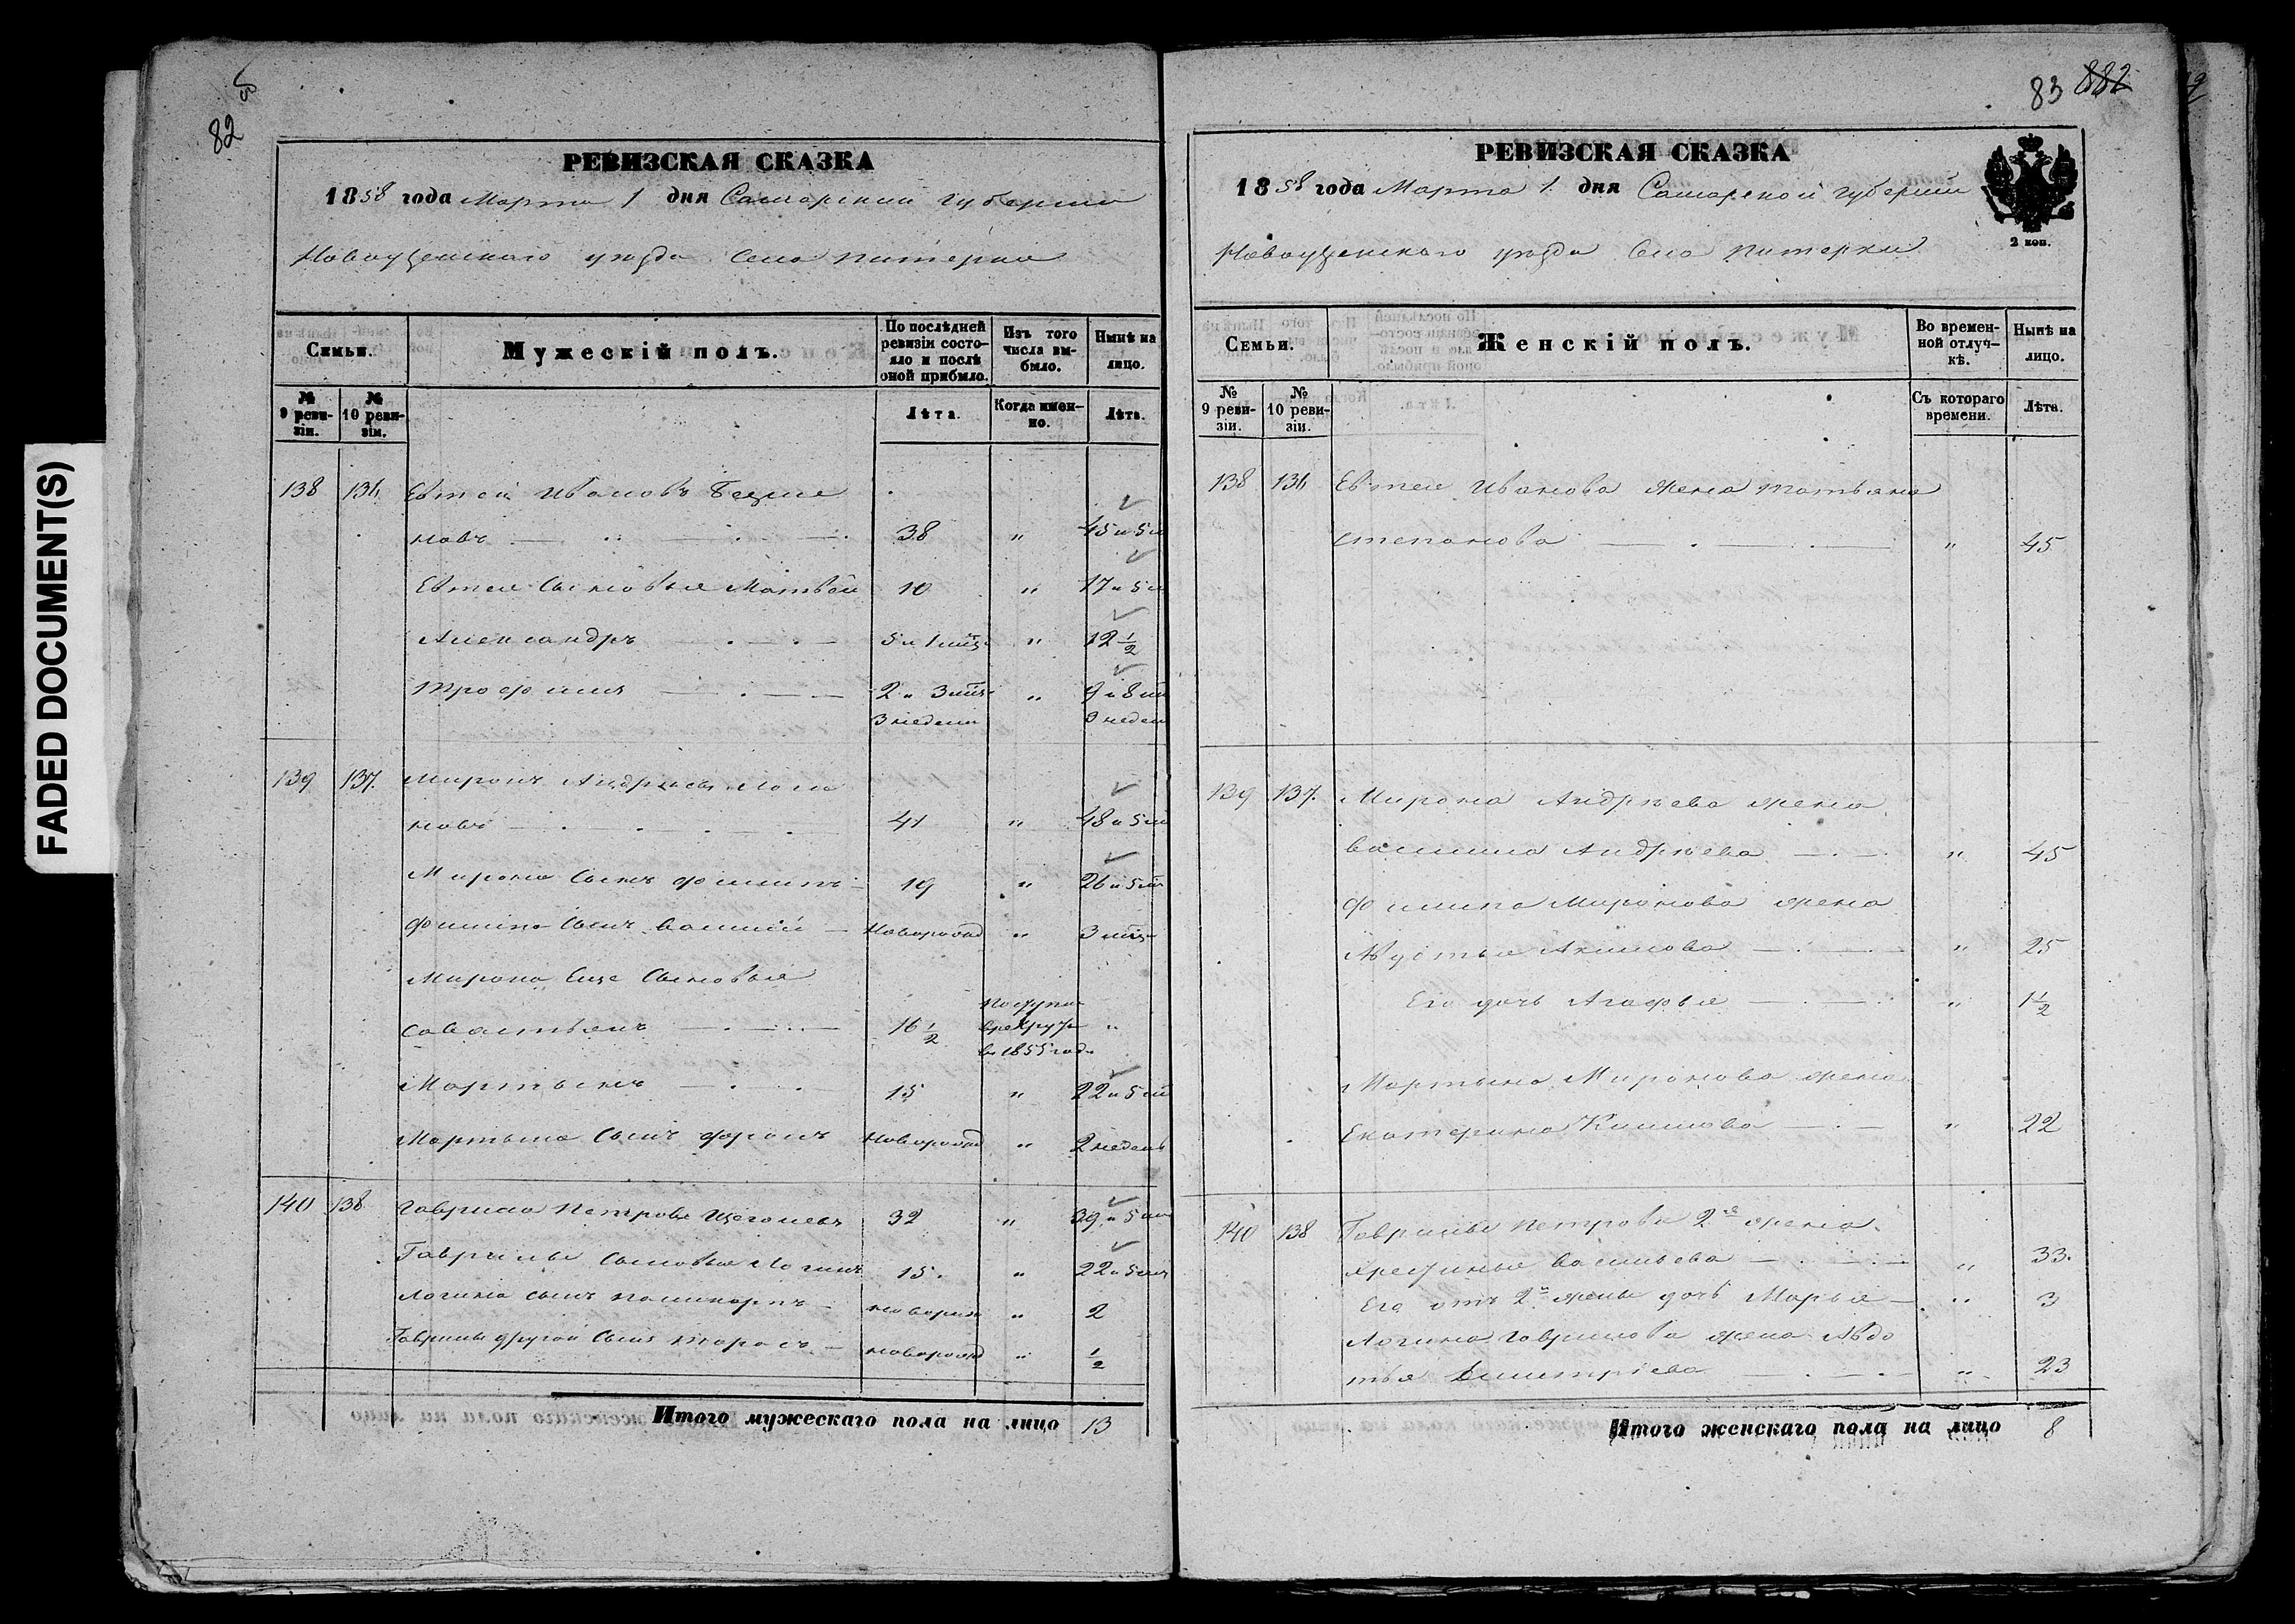 FADED DOCUMENT(S)
82
РЕВИЗСКАЯ СКАЗКА
1858 года Марта 1 дня Самарской губернии
Новоузенскаго уезда Села Питерки
Семьи.
Мужескій полъ.
По послѣдней ревизіи состояло и послѣ оной прибыло.
Изъ того числа выбыло.
Нынѣ на лицо.
№ 9 ревизіи.
№ 10 ревизіи.
Лѣта.
Когда именно.
Лѣта.
138 136 Евтей Ивановъ
новъ 38 " 45 и 5 м
Евтея Сыновья Матвей 10 " 17 и 5 м
Александръ 5 и 1 мц " 12 1/2
Трофимъ 2 и 3 мц " 9 и 8 мц
3 недели 9 недел
139 137. Миронъ Андреевъ
новъ 41 " 48 и 5 м
Мирона Сынъ Филипъ 19 " 26 и 5 мц
Филипа Сынъ Василий Новорожд " 3 мца
Мирона Еще Сыновья
Савастьянъ 16 1/2 Поступил в рекруты в 1855 годе "
Мартынъ 15 " 22 и 5 м
Мартына Сынъ Фролъ Новорожд " 2 недель
140 138 Гаврила Петровъ Щеголевъ 32 " 39 и 5 мц
Гаврилы Сыновья Логинъ 15. " 22 и 5 мц
Логина сынъ Поликарпъ новорож " 2
Гаврилы другой Сынъ Тарасъ новорожд " 1/2
Итого мужескаго пола на лицо 13
83 882
РЕВИЗСКАЯ СКАЗКА
1858 года Марта 1. дня Самарской губернии
Новоузенскаго уезда Села Питерки
2 коп.
Семьи.
Женскій полъ.
Во временной отлучкѣ.
Нынѣ на лицо.
№ 9 ревизіи.
№ 10 ревизіи.
Съ котораго времени.
Лѣта.
138 136 Евтея Иванова жена Татьяна
Степанова " 45
139 137. Мирона Андреева жена
Василиса Андреева " 45
Филипа Миронова жена
Авдотья Акимова " 25
Его дочь Агафья " 1 1/2
Мартына Миронова жена
Екатерина Климова " 22
140 138 Гаврилы Петрова 2я жена
Хрестинья Васильева " 33.
Его отъ 2й жены дочь Марья " 3
Логина Гаврилова жена Авдо
тья Димитріева " 23
Итого женскаго пола на лицо 8